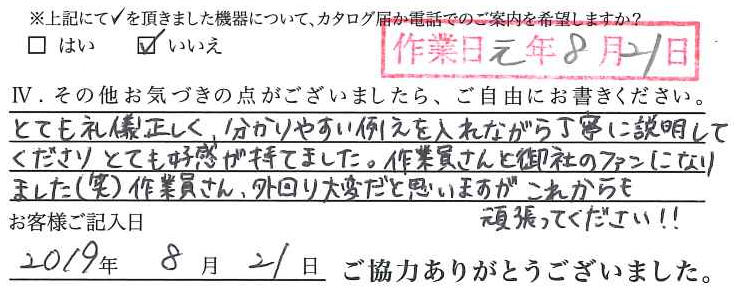 ※上記にて✓を頂きました機器について、カタログ届か電話でのご案内を希望しますか?
□ はい ☑ いいえ
作業日元年8月21日
Ⅳ．その他お気づきの点がございましたら、ご自由にお書きください。
とても礼儀正しく、分かりやすい例えを入れながら丁寧に説明して
くださり とても好感が持てました。作業員さんと御社のファンになり
ました(笑)作業員さん、外回り大変だと思いますが これからも
頑張ってください!!
お客様ご記入日
2019年 8月 21日 ご協力ありがとうございました。